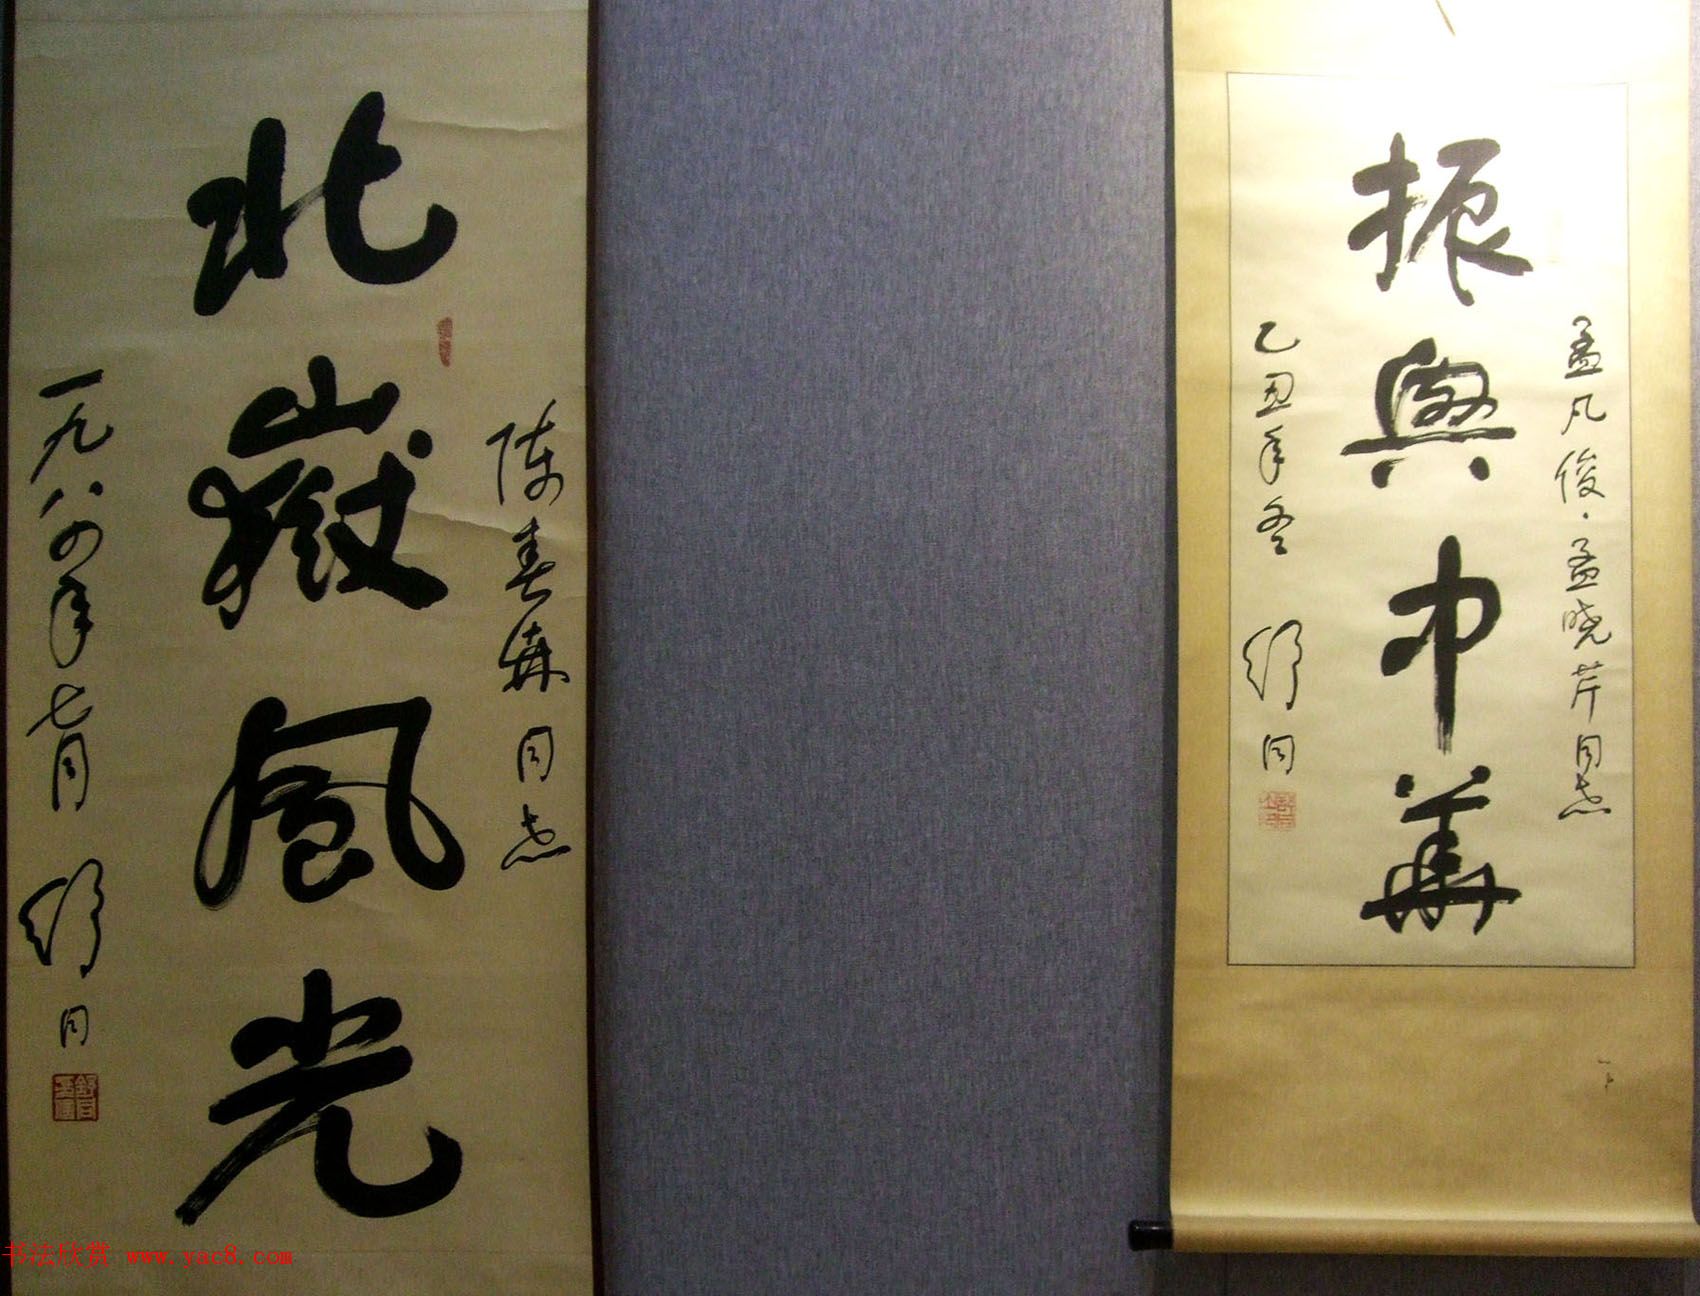 孟凡俊·孟晓芹同志
振興中華
乙丑年冬 舒同
陈春森同志
北嶽風光
一九八四年七月 舒同
书法欣赏 www.yac8.com